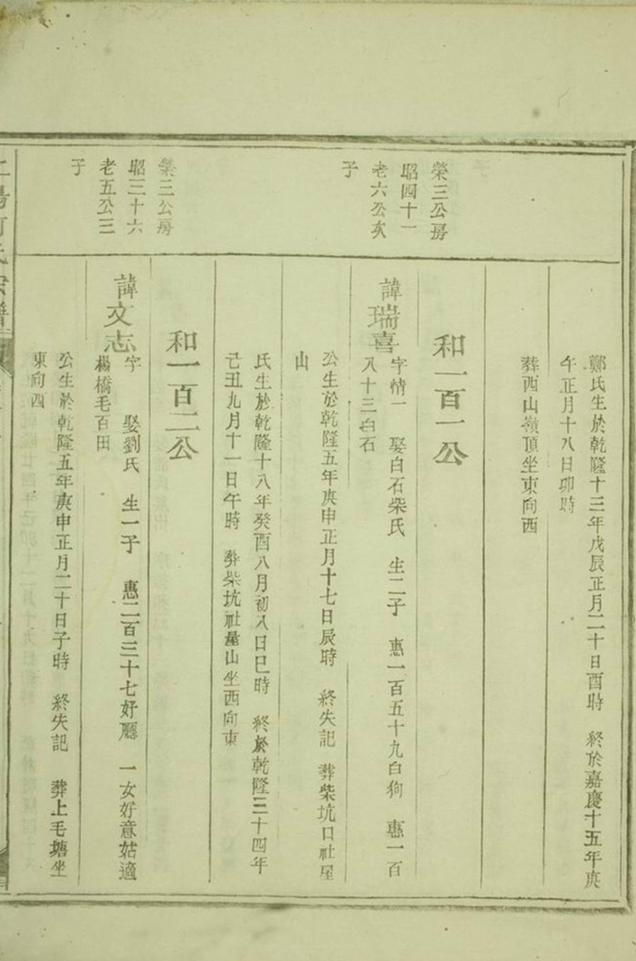 鄭氏生於乾隆十三年戊辰正月二十日酉時　終於嘉慶十五年庚
午正月十八日卯時
葬西山嶺頂坐東向西
榮三公房
昭四十一
老六公次
子
和一百一公
諱瑞喜
字情一　娶白石柴氏　生二子　惠一百五十九白狗　惠一百
八十三白石
公生於乾隆五年庚申正月十七日辰時　終失記　葬柴坑口社屋
山
氏生於乾隆十八年癸酉八月初八日巳時　終於乾隆三十四年
己丑九月十一日午時　葬柴坑社屋山坐西向東
榮三公房
昭三十六
老五公三
子
和一百二公
諱文志
字　娶劉氏　生一子　惠二百三十七好廳　一女好意姑適
楊橋毛百田
公生於乾隆五年庚申正月二十日子時　終失記　葬上毛塘坐
東向西
陽何氏宗譜